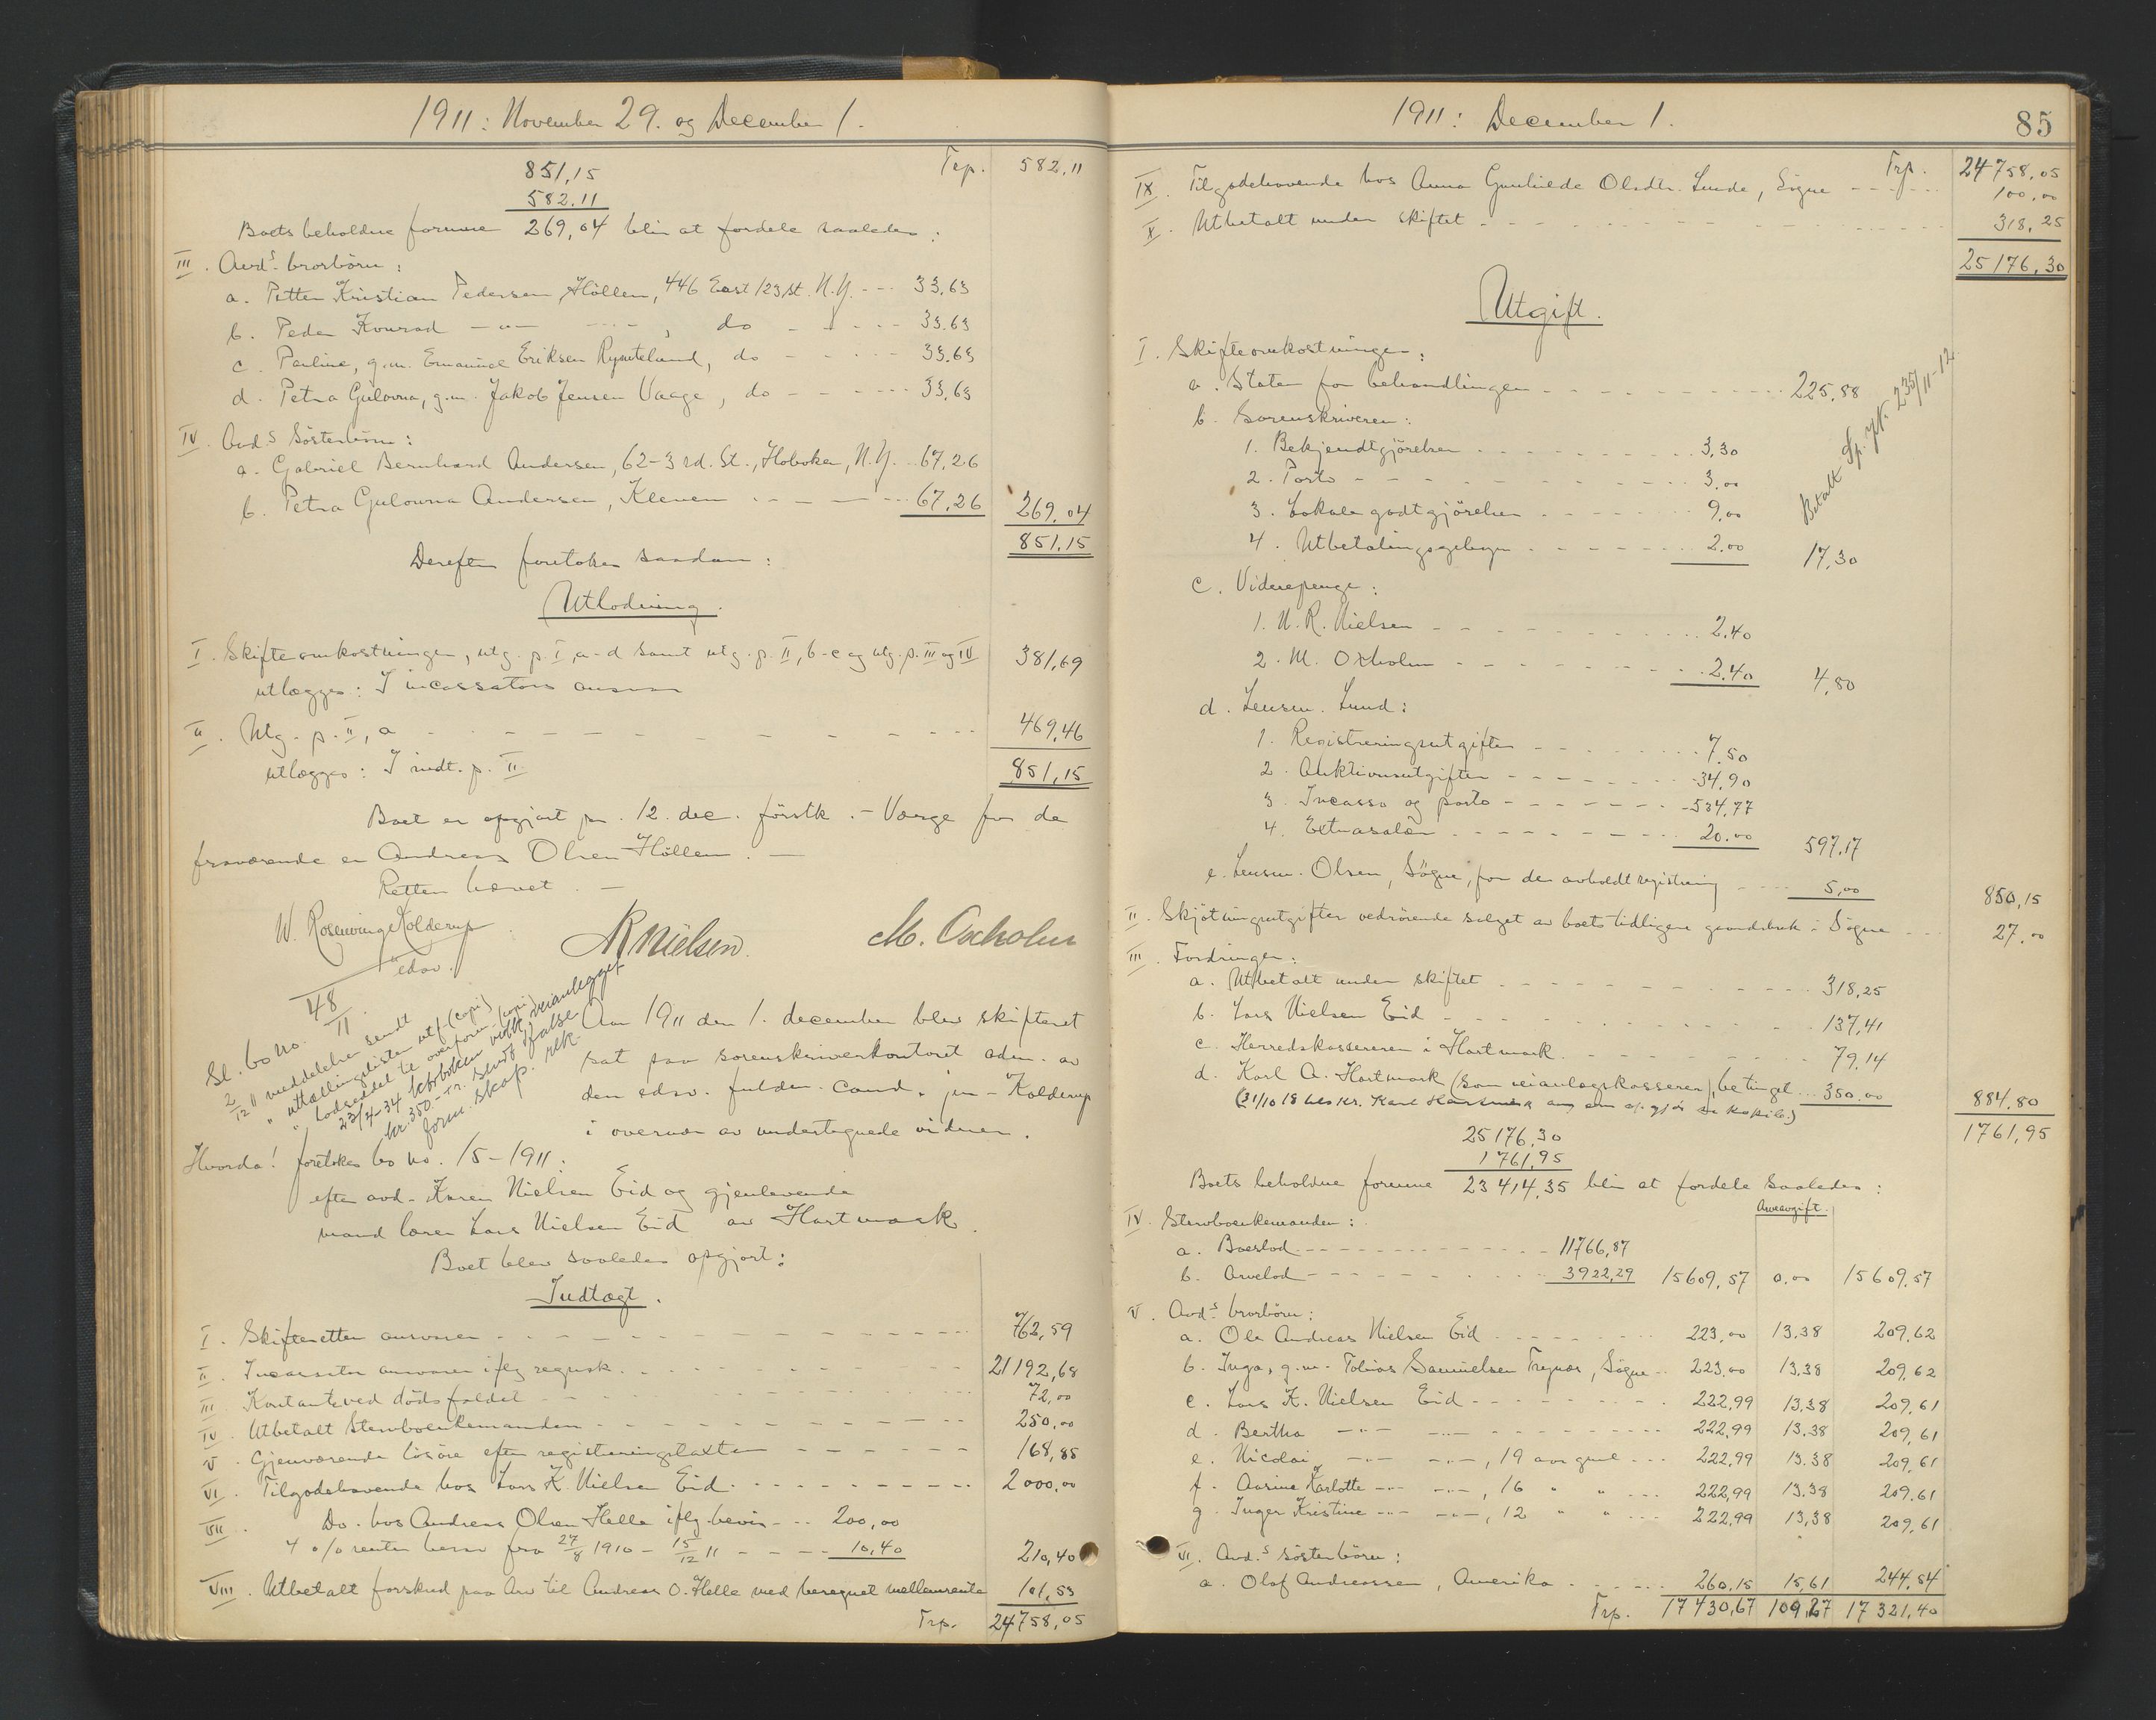 1911: November 29. og December 1.
Trp. 582,11
851,15
582,11
Boets beholdne formue 269,04 blir at fordele saaledes:
III. Avd.s brorbörn:
a. Petter Kristian Pedersen Höllen, 446 East 123 St. N.Y. --- 33,63
b. Peder Konrad —"— ---, do - - - - 33.63
c. Pauline, g.m. Emanuel Eriksen Rymtelund, do - - - - 33,63
d. Petra Gulovna, g.m. Jakob Jensen Vaage, do - - - - 33,63
IV. Avd.s Sösterbörn:
a. Gabriel Bernhard Andersen, 62-3rd. St., Hoboken, N.Y. 67,26
b. Petra Gulovna Andersen, Kleven - - - - 67,26 269,04
851,15
Derefter foretokes saadan:
Utlodning.
I. Skifteomkostninger, utg. p. I, a-d samt utg. p. II, b-c og utg. p. III og IV 381,69
utlægges: I incassators ansvar
II. Utg. p. II, a - - - - - - 469,46
utlægges: I indt. p. II 851,15
Boet er opgjort pr. 12. dec. förstk. - Værge for de
fraværende er Andreas Olsen Höllen. —
Retten hævet. —
W. Rosenvinge Kolderup
edsv.
NRNielsen.
M. Oxholm
48/11.
Sl. bo no.
2/12 11 meddelelser sendt
" uttællingslisten utf (copi)
" lodseddel te overform (copi)
23/4-34 kr. 350.- tr. sendt
form. skap. rek.
Aar 1911 den 1. december blev skifteret
sat paa sorenskriverkontoret adm. av
den edsv. fuldm. cand. jur. Kolderup
i overvær av undertegnede vidner.
Hvorda! foretokes bo no. 15-1911:
efter avd. Karen Nielsen Eid og gjenlevende
mand lærer Lars Nielsen Eid av Hartmark.
Boet blev saaledes opgjort:
Indtægt.
I. Skifteretten ansvarer - - - - - - 762,59
II. Incassator ansvarer iflg regnsk. - - - - 21192,68
III. Kontant ved dödsfaldet - - - - 72,00
IV. Utbetalt Stervboenkemanden - - - - 250,00
V. Gjenværende lösöre efter registreringstaxten - - - - 168,85
VI. Tilgodehavende hos Lars K. Nielsen Eid - - - - 2000,00
VII. Do. hos Andreas Olsen Helle iflg. bevis --- 200,00
4 o/o renter herav fra 27/8 1910 - 15/12 11 - - - 10,40 210,40
VIII. Utbetalt forskud paa Arv til Andreas O. Helle med beregnet mellemrente 101,53
Trp. 24758,05
1911: December 1.
85
Trp. 24758,05
IX. Tilgodehavende hos Anna Gunhilde Olsdtr. Lunde, Sögne - - - 100,00
X. Utbetalt under skiftet - - - - - - 318,25
25176,30
Utgift.
I. Skifteomkostninger:
a. Staten for behandlingen - - - - - - 225,88
b. Sorenskriveren:
1. Bekjendtgjörelsen - - - - 3,30
2. Porto - - - - 3,00
3. Lokalegodtgjörelsen - - - - 9,00
4. Utbetalingsgebyr - - - - 2,00 17,30
Betalt Sp. jr. 235/11-12
c. Vidnepenge:
1. N.R. Nielsen - - - - 2,40
2. M. Oxholm - - - - 2,40 4,80
d. Lensm. Lund:
1. Registreringsutgifter - - - - 7,50
2. Auktionsutgifter - - - - 34,90
3. Incasso og porto - - - - 534,77
4. Extrasalær - - - - 20,00 597,17
e. Lensm. Olsen, Sögne, for den avholdt registrering - - - 5,00 850,15
II. Skjötningsutgifter vedrörende salget av boets tidligere grundbruk i Sögne - - - 27,00
III. Fordringer:
a. Utbetalt under skiftet - - - - 318,25
b. Lars Nielsen Eid - - - - 137,41
c. Herredskassereren i Hartmark - - - - 79,14
d. Karl A. Hartmark (som veianlægskasserer), betinget ... 350.00 884,80
1761,95
25176,30
1761,95
Boets beholdne formue 23414,35 blir at fordele saaledes:
Arveavgift.
IV. Stervboenkemanden:
a. Boeslod - - - - 11766,87
b. Arvelod - - - - 3922,29 15609,57 0.00 15609,57
V. Avd.s brorbörn:
a. Ole Andreas Nielsen Eid - - - - 223,00 13,38 209,62
b. Inga, g.m. Tobias Samuelsen Trysnes, Sögne - - 223,00 13,38 209,62
c. Lars K. Nielsen Eid - - - - 222,99 13,38 209,61
d. Bertha —"— —"— - - - - 222,99 13.38 209,61
e. Nicolai —"— —"—, 19 aar gml. - - - 222,99 13.38 209,61
f. Aasine Karlotte —"— —"—, 16 " " - - - 222,99 13,38 209,61
g. Inger Kristine —"— —"—, 12 " " - - - 222,99 13,38 209,61
VI. Avd.s sösterbörn:
a. Olaf Andreassen, Amerika - - - - 260,15 15,61 244,54
Trp. 17430,67 109,27 17321,40